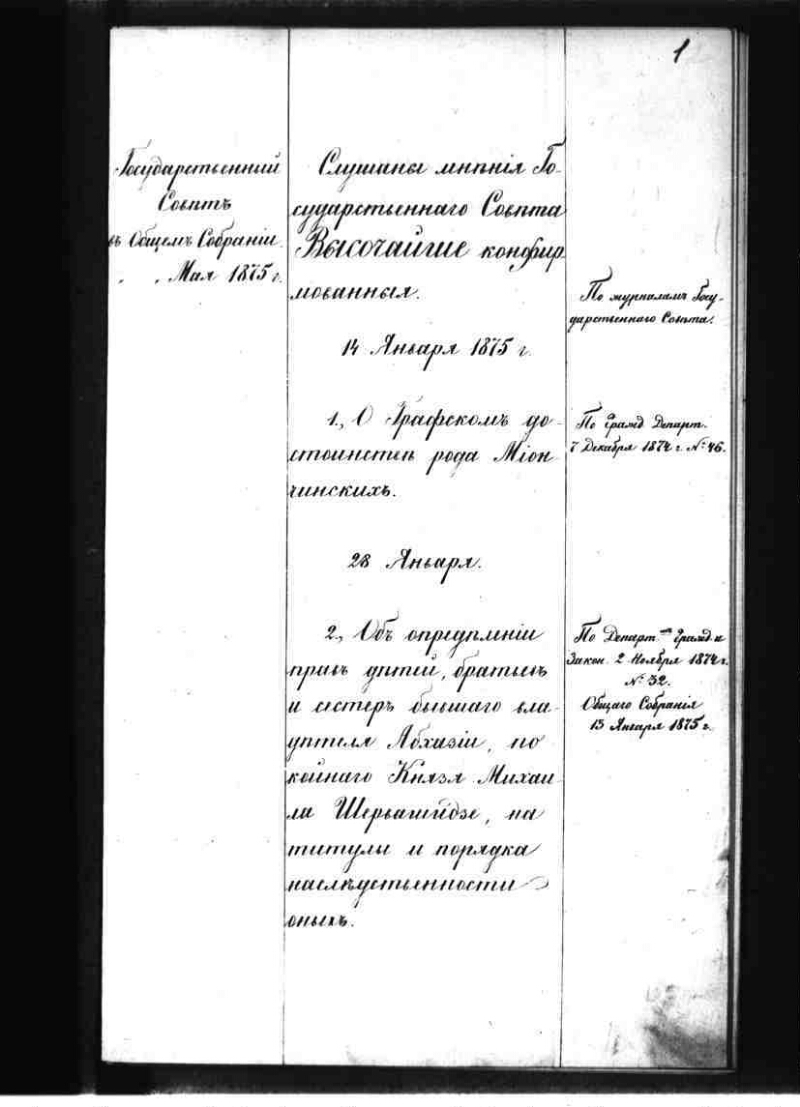 1
Государственный
Совѣтъ
въ Общемъ Собраніи
" " Мая 1875 г.
Слушаны мнѣнія Го-
сударственнаго Совѣта
Высочайше конфир
мованныя.
14 Января 1875 г.
1., О Графскомъ до-
стоинствѣ рода Міон
чинскихъ.
28 Января.
2., Объ опредѣленіи
правъ дѣтей, братьевъ
и сестеръ бывшаго вла-
дѣтеля Абхазіи, по
койнаго Князя Михаи
ла Шервашидзе, на
титулы и порядка
наслѣдственности
оныхъ.
По журналамъ Госу-
дарственнаго Совѣта.
По Гражд Департ.
7 Декабря 1874 г. № 46.
По Департ.амъ Гражд. и
Закон. 2 Ноября 1874 г.
№ 32.
Общаго Собранія
13 Января 1875 г.